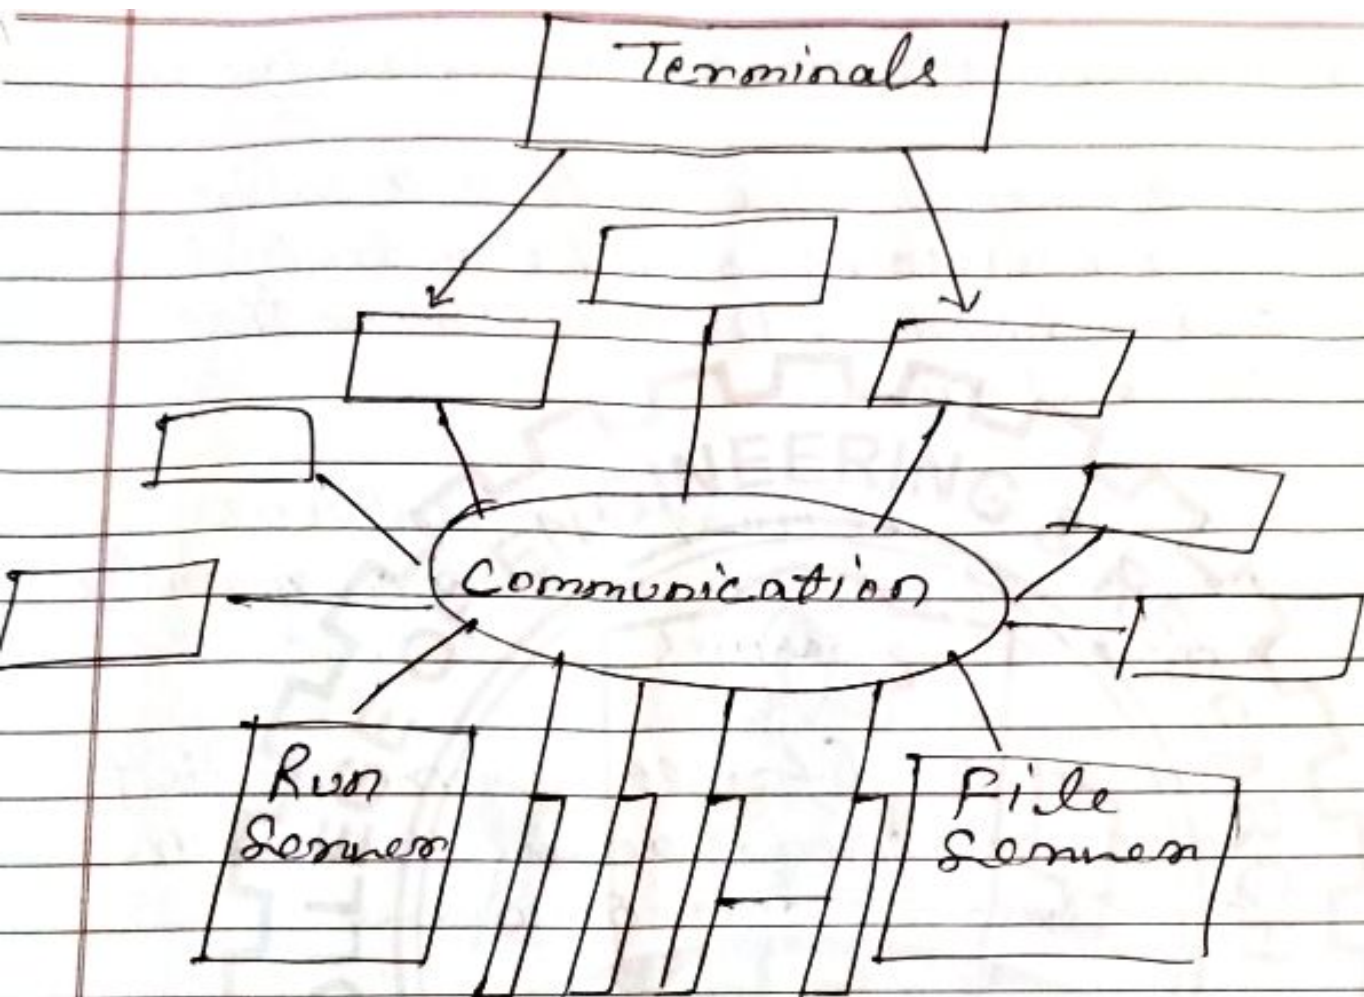 Terminals
Communication
Run
Server
File
Server
NEERING